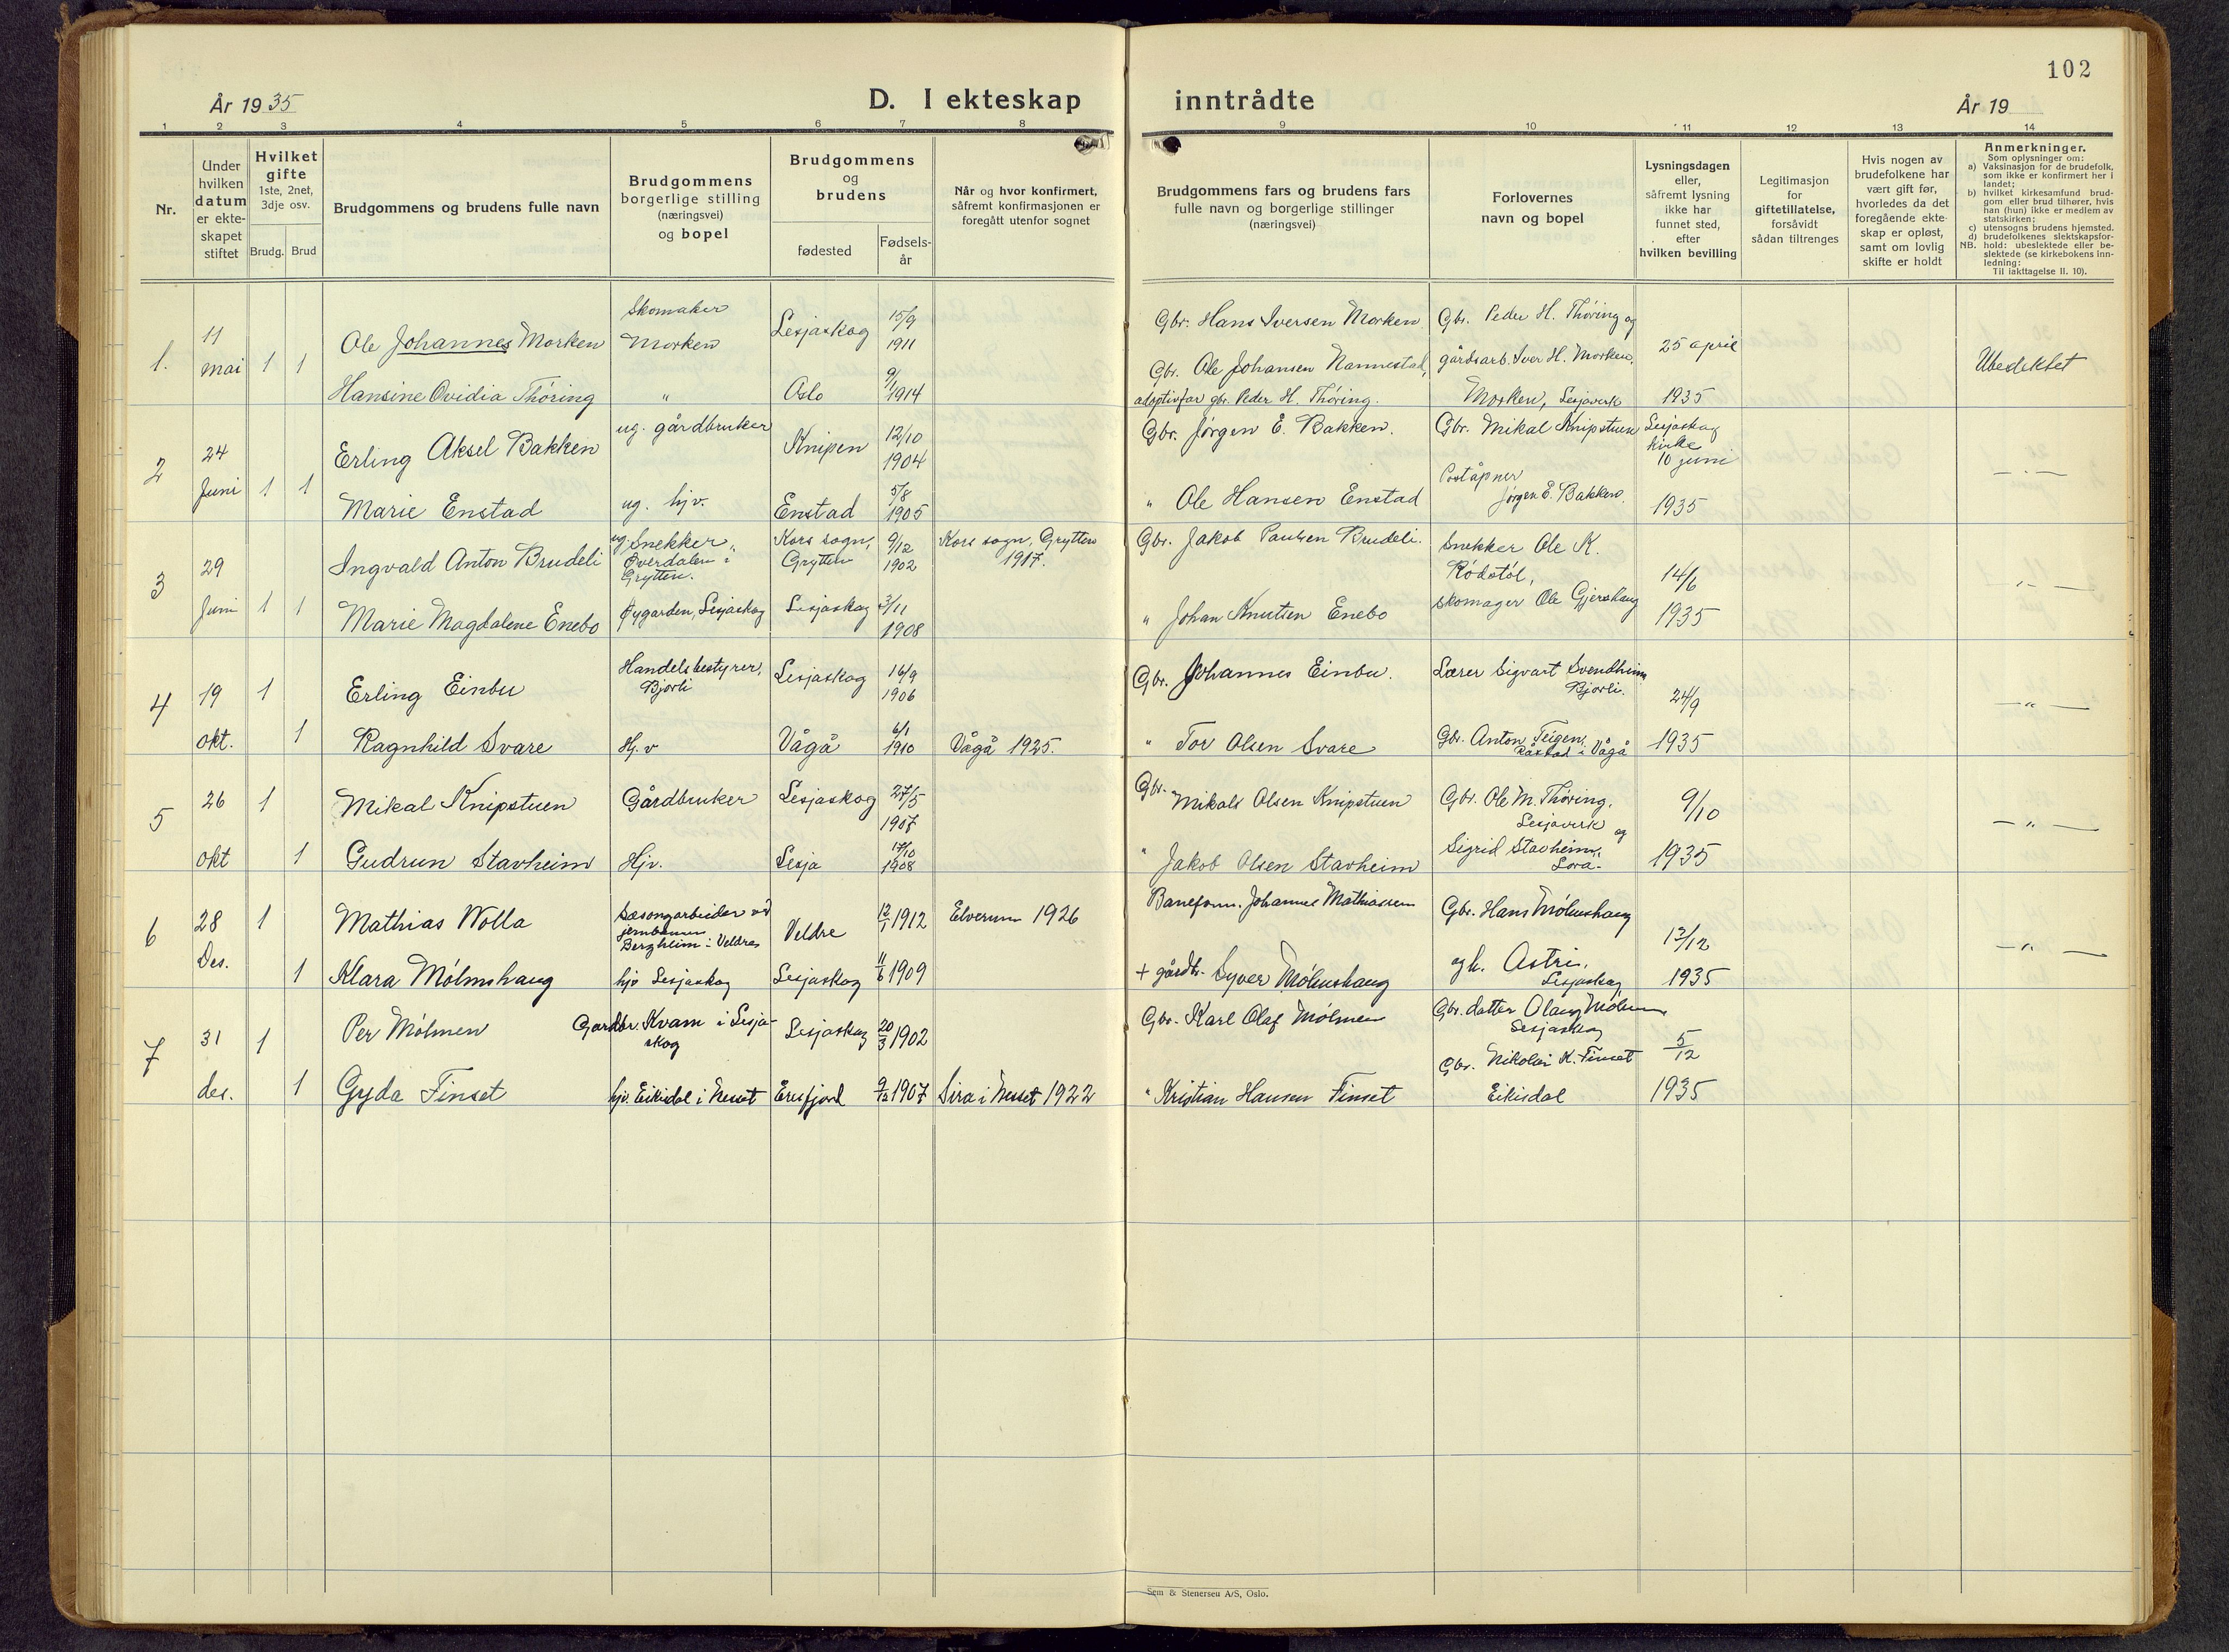 102
År 1935
D. I ekteskap inntrådte
År 19
1 2 3 4 5 6 7 8 9 10 11 12 13 14
Nr.
Under hvilken datum er ekte-skapet stiftet
Hvilket gifte
1ste, 2net, 3dje osv.
Brudg. Brud
Brudgommens og brudens fulle navn
Brudgommens borgerlige stilling (næringsvei) og bopel
Brudgommens og brudens
fødested
Fødsels-år
Når og hvor konfirmert, såfremt konfirmasjonen er foregått utenfor sognet
Brudgommens fars og brudens fars fulle navn og borgerlige stillinger (næringsvei)
Forlovernes navn og bopel
Lysningsdagen eller, såfremt lysning ikke har funnet sted, efter hvilken bevilling
Legitimasjon for giftetillatelse, forsåvidt sådan tiltrenges
Hvis nogen av brudefolkene har vært gift før, hvorledes da det foregående ekte-skap er opløst, samt om lovlig skifte er holdt
Anmerkninger.
Som oplysninger om:
a) Vaksinasjon for de brudefolk, som ikke er konfirmert her i landet;
b) hvilket kirkesamfund brud-gom eller brud tilhører, hvis han (hun) ikke er medlem av statskirken;
c) utensogns brudens hjemsted.
d) brudefolkenes slektskapsfor-
NB. hold: ubeslektede eller be-slektede (se kirkebokens inn-ledning:
Til iakttagelse II. 10).
1. 11 mai 1 1
Ole Johannes Morken
Skomaker Morken
Lesjaskog 15/9 1911
Gbr. Hans Iversen Morken
Gbr. Peder H. Thöring og
gårdsarb. Iver H. Morken,
Morken, Lesjaverk
25 april 1935
Ubeslektet
Hansine Ovidia Thöring
" Oslo 9/1 1914
Gbr. Ole Johansen Nannestad,
adoptivfar gbr. Peder H. Thöring.
2 24 Juni 1 1
Erling Aksel Bakken
ug. gårdbruker
Knipen 12/10 1904
Gbr. Jørgen E. Bakken.
Gbr. Mikal Knipstuen
Poståpner Jørgen E. Bakken.
Lesjaskog kirke 10 juni 1935
— " —
Marie Enstad
ug. hjv.
Enstad 5/8 1905
" Ole Hansen Enstad
3 29 Juni 1 1
Ingvald Anton Brudeli
ug. Snekker, Øverdalen i Grytten.
Kors sogn, Grytten 9/12 1902
Kors sogn, Grytten 1917.
Gbr. Jakob Paulsen Brudeli.
Snekker Ole K.
skomager Ole Gjershaug
14/6 1935
— " —
Marie Magdalene Enebo
Øygarden, Lesjaskog
Lesjaskog 3/11 1908
" Johan Knutsen Enebo
4 19 okt. 1
Erling Einbu
Handelsbestyrer, Bjorli
Lesjaskog 16/9 1906
Gbr. Johannes Einbu.
Lærer Sigvart Svendheim Bjorli.
24/9 1935
— " —
1 Ragnhild Svare
Hj.v
Vågå 6/1 1910
Vågå 1925.
" Tor Olsen Svare
Gbr. Anton Teigen, i Vågå
5 26 okt 1
Mikal Knipstuen
Gårdbruker
Lesjaskog 27/5 1907
Gbr. Mikals Olsen Knipstuen
Gbr. Ole M. Thöring, Lesjaverk og
9/10 1935
— " —
1 Gudrun Stavheim
Hjv.
Lesja 17/10 1908
" Jakob Olsen Stavheim
Sigrid Stavheim, Lora.
6 28 Des. 1
Mathias Wolla
Sæsongarbeider ved jernbanen Bergheim i Veldre
Veldre 12/1 1912
Elverum 1926
Baneform. Johannes Mathiassen
Gbr. Hans Mölmshaug
12/12 1935
— " —
1 Klara Mölmshaug
hjv Lesjaskog
Lesjaskog 11/6 1909
+ gårdbr. Syver Mölmshaug
og h. Astri, Lesjaskog
7 31 des. 1
Per Mölmen
Gardbr. Kvam i Lesja-skog
Lesjaskog 20/3 1902
Gbr. Karl Olaf Mölmen
Gbr. datter Olaug Mölmen Lesjaskog
5/12 1935
1 Gyda Finset
hjv. Eikisdal i Nesset
Eresfjord 9/12 1907
Sira i Nesset 1922
" Kristian Hansen Finset
Gbr. Nikolai K. Finset Eikisdal
Sem & Stenersen A/S, Oslo.